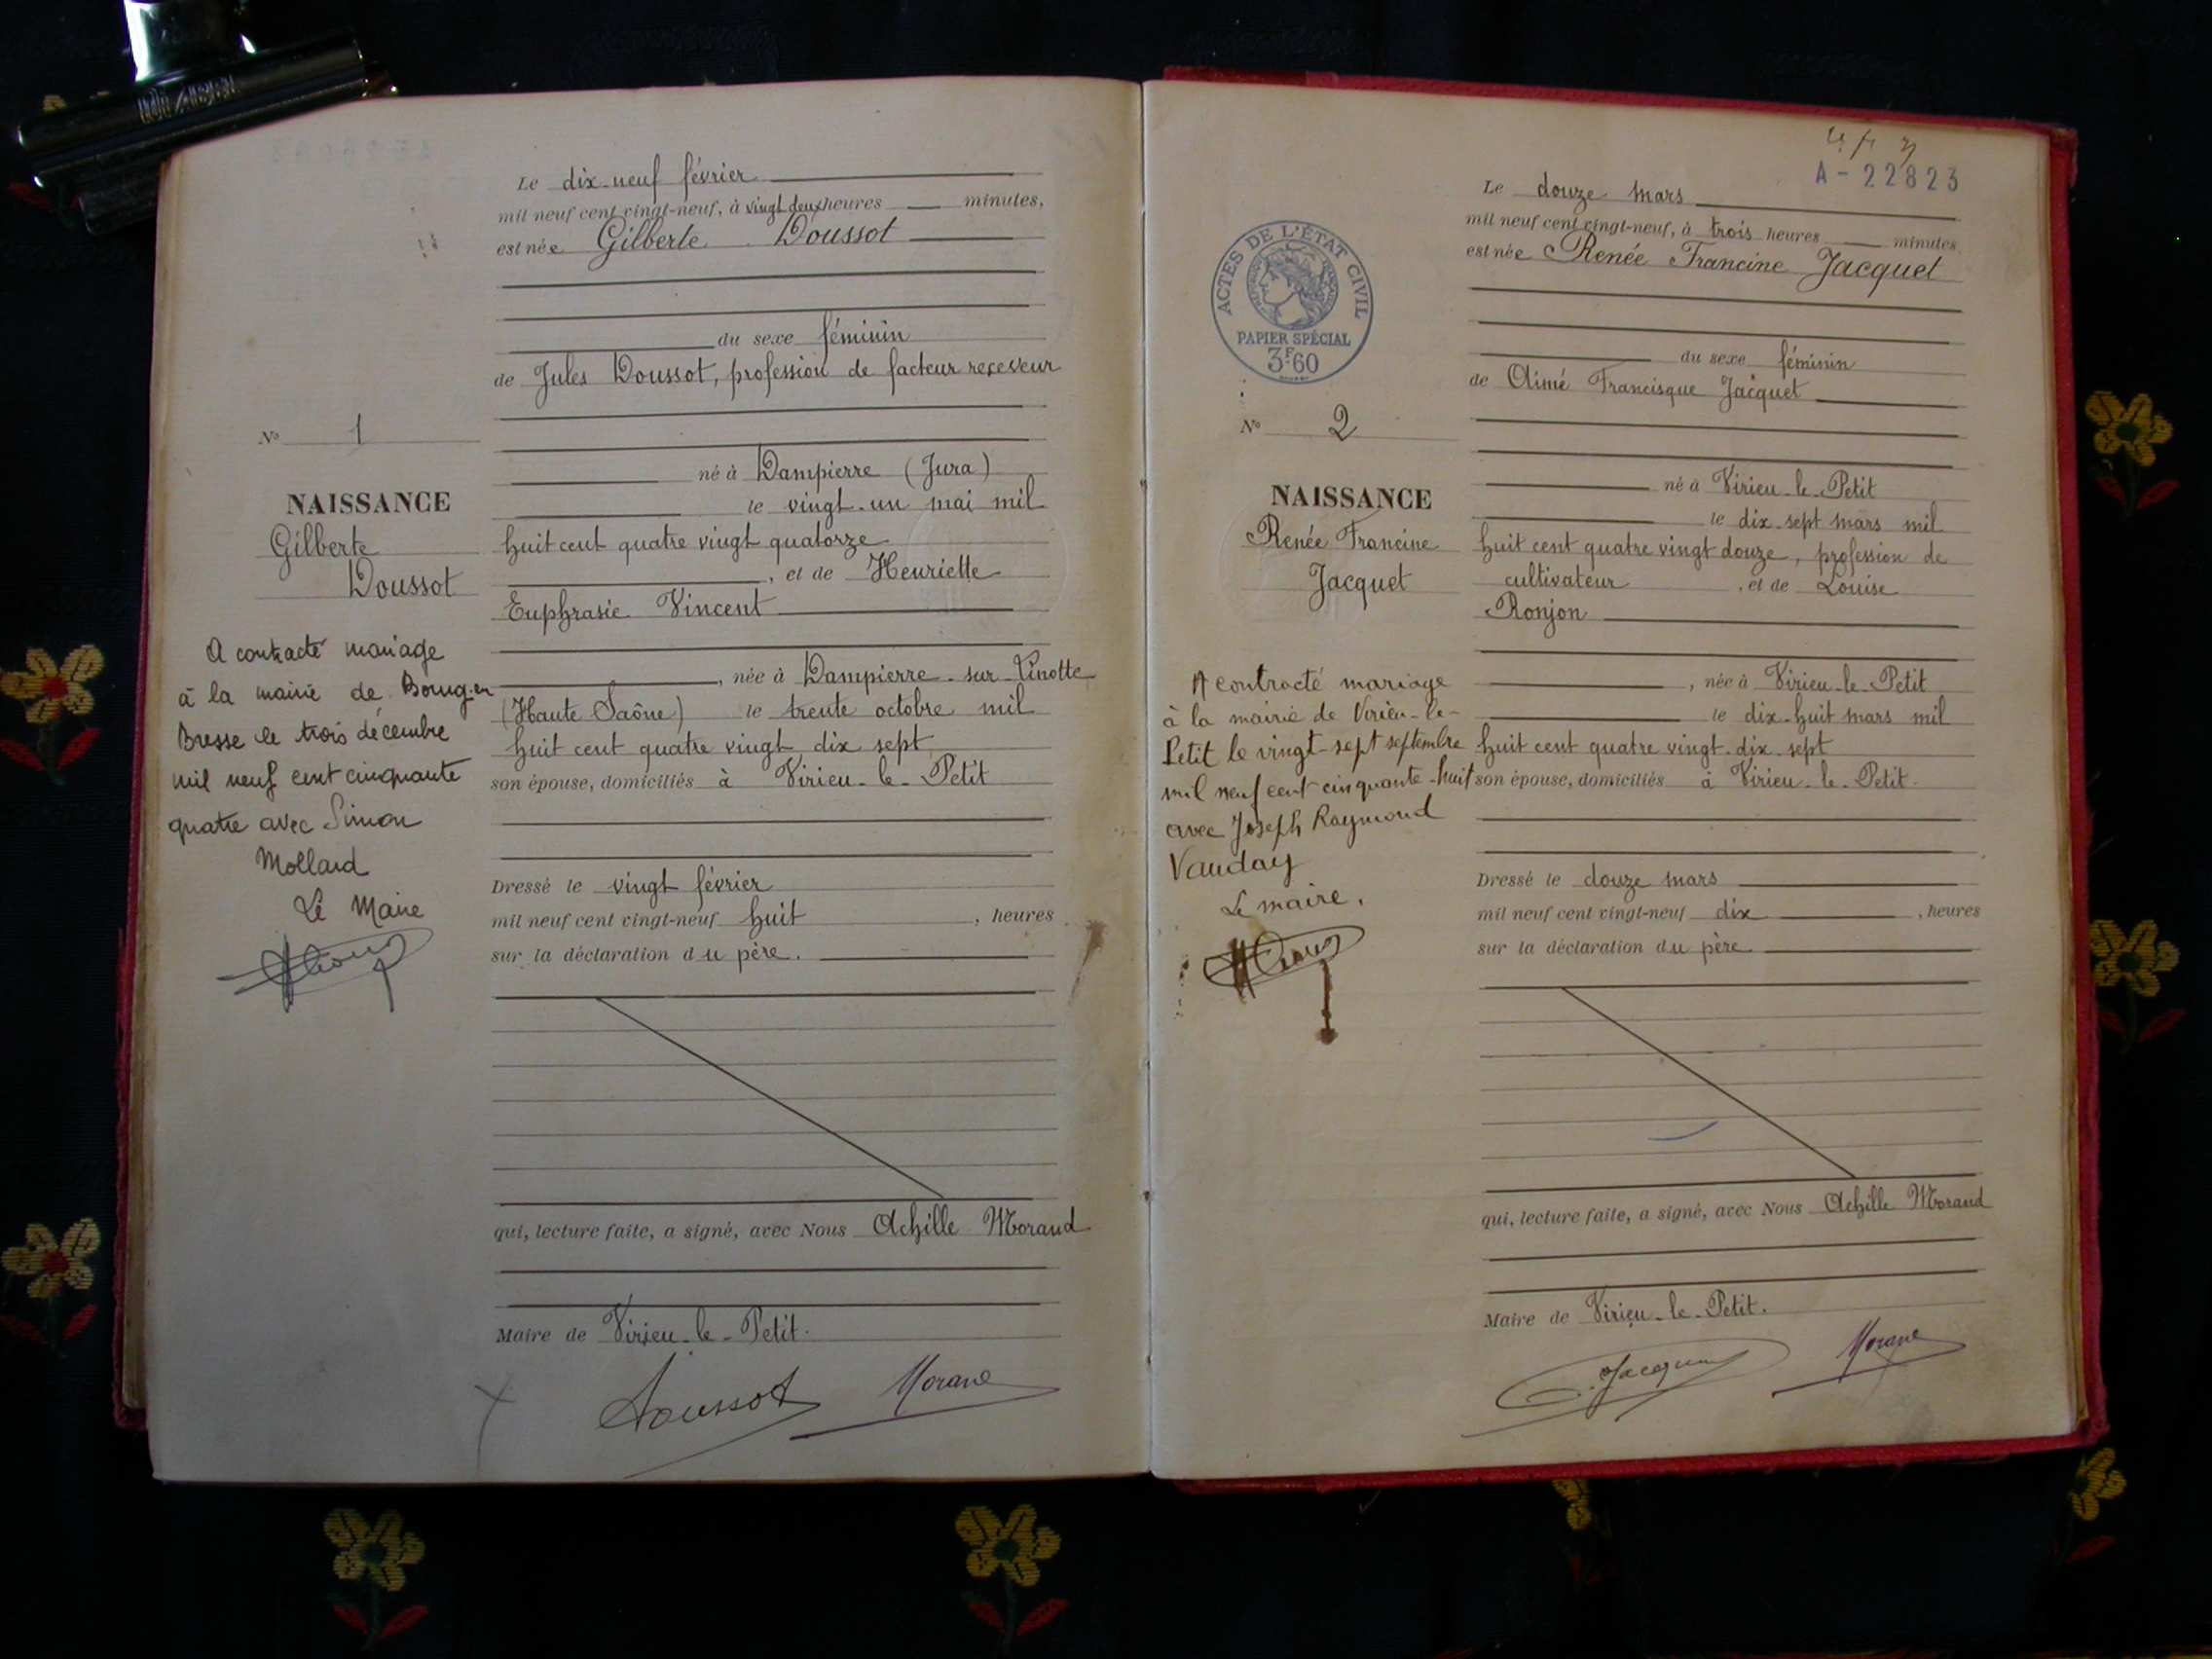 Le dix-neuf février
mil neuf cent vingt-neuf, à vingt deux heures minutes,
est née Gilberte Doussot
du sexe féminin
de Jules Doussot, profession de facteur receveur
né à Dampierre (Jura)
le vingt-un mai mil
huit cent quatre vingt quatorze
, et de Henriette
Euphrasie Vincent
, née à Dampierre-sur-Linotte
(Haute Saône) le trente octobre mil
huit cent quatre vingt dix sept
son épouse, domiciliés à Virieu-le-Petit
Dressé le vingt février
mil neuf cent vingt-neuf huit , heures
sur la déclaration du père.
qui, lecture faite, a signé, avec Nous Achille Morand
Maire de Virieu-le-Petit.
Doussot Morand
No 1
NAISSANCE
Gilberte
Doussot
A contracté mariage
à la mairie de Bourg-en
Bresse le trois décembre
mil neuf cent cinquante
quatre avec Simon
Mollard
Le Maire
A-22823
Le douze mars
mil neuf cent vingt-neuf, à trois heures minutes
est née Renée Francine Jacquet
du sexe féminin
de Aimé Francisque Jacquet
né à Virieu-le-Petit
le dix-sept mars mil
huit cent quatre vingt douze, profession de
cultivateur , et de Louise
Ronjon
, née à Virieu-le-Petit
le dix-huit mars mil
huit cent quatre vingt-dix-sept
son épouse, domiciliés à Virieu-le-Petit.
Dressé le douze mars
mil neuf cent vingt-neuf dix , heures
sur la déclaration du père
qui, lecture faite, a signé, avec Nous Achille Morand
Maire de Virieu-le-Petit.
Jacquet Morand
ACTES DE L'ÉTAT CIVIL
PAPIER SPÉCIAL
3F60
No 2
NAISSANCE
Renée Francine
Jacquet
A contracté mariage
à la mairie de Virieu-le-
Petit le vingt-sept septembre
mil neuf cent cinquante-huit
avec Joseph Raymond
Vauday
Le maire,